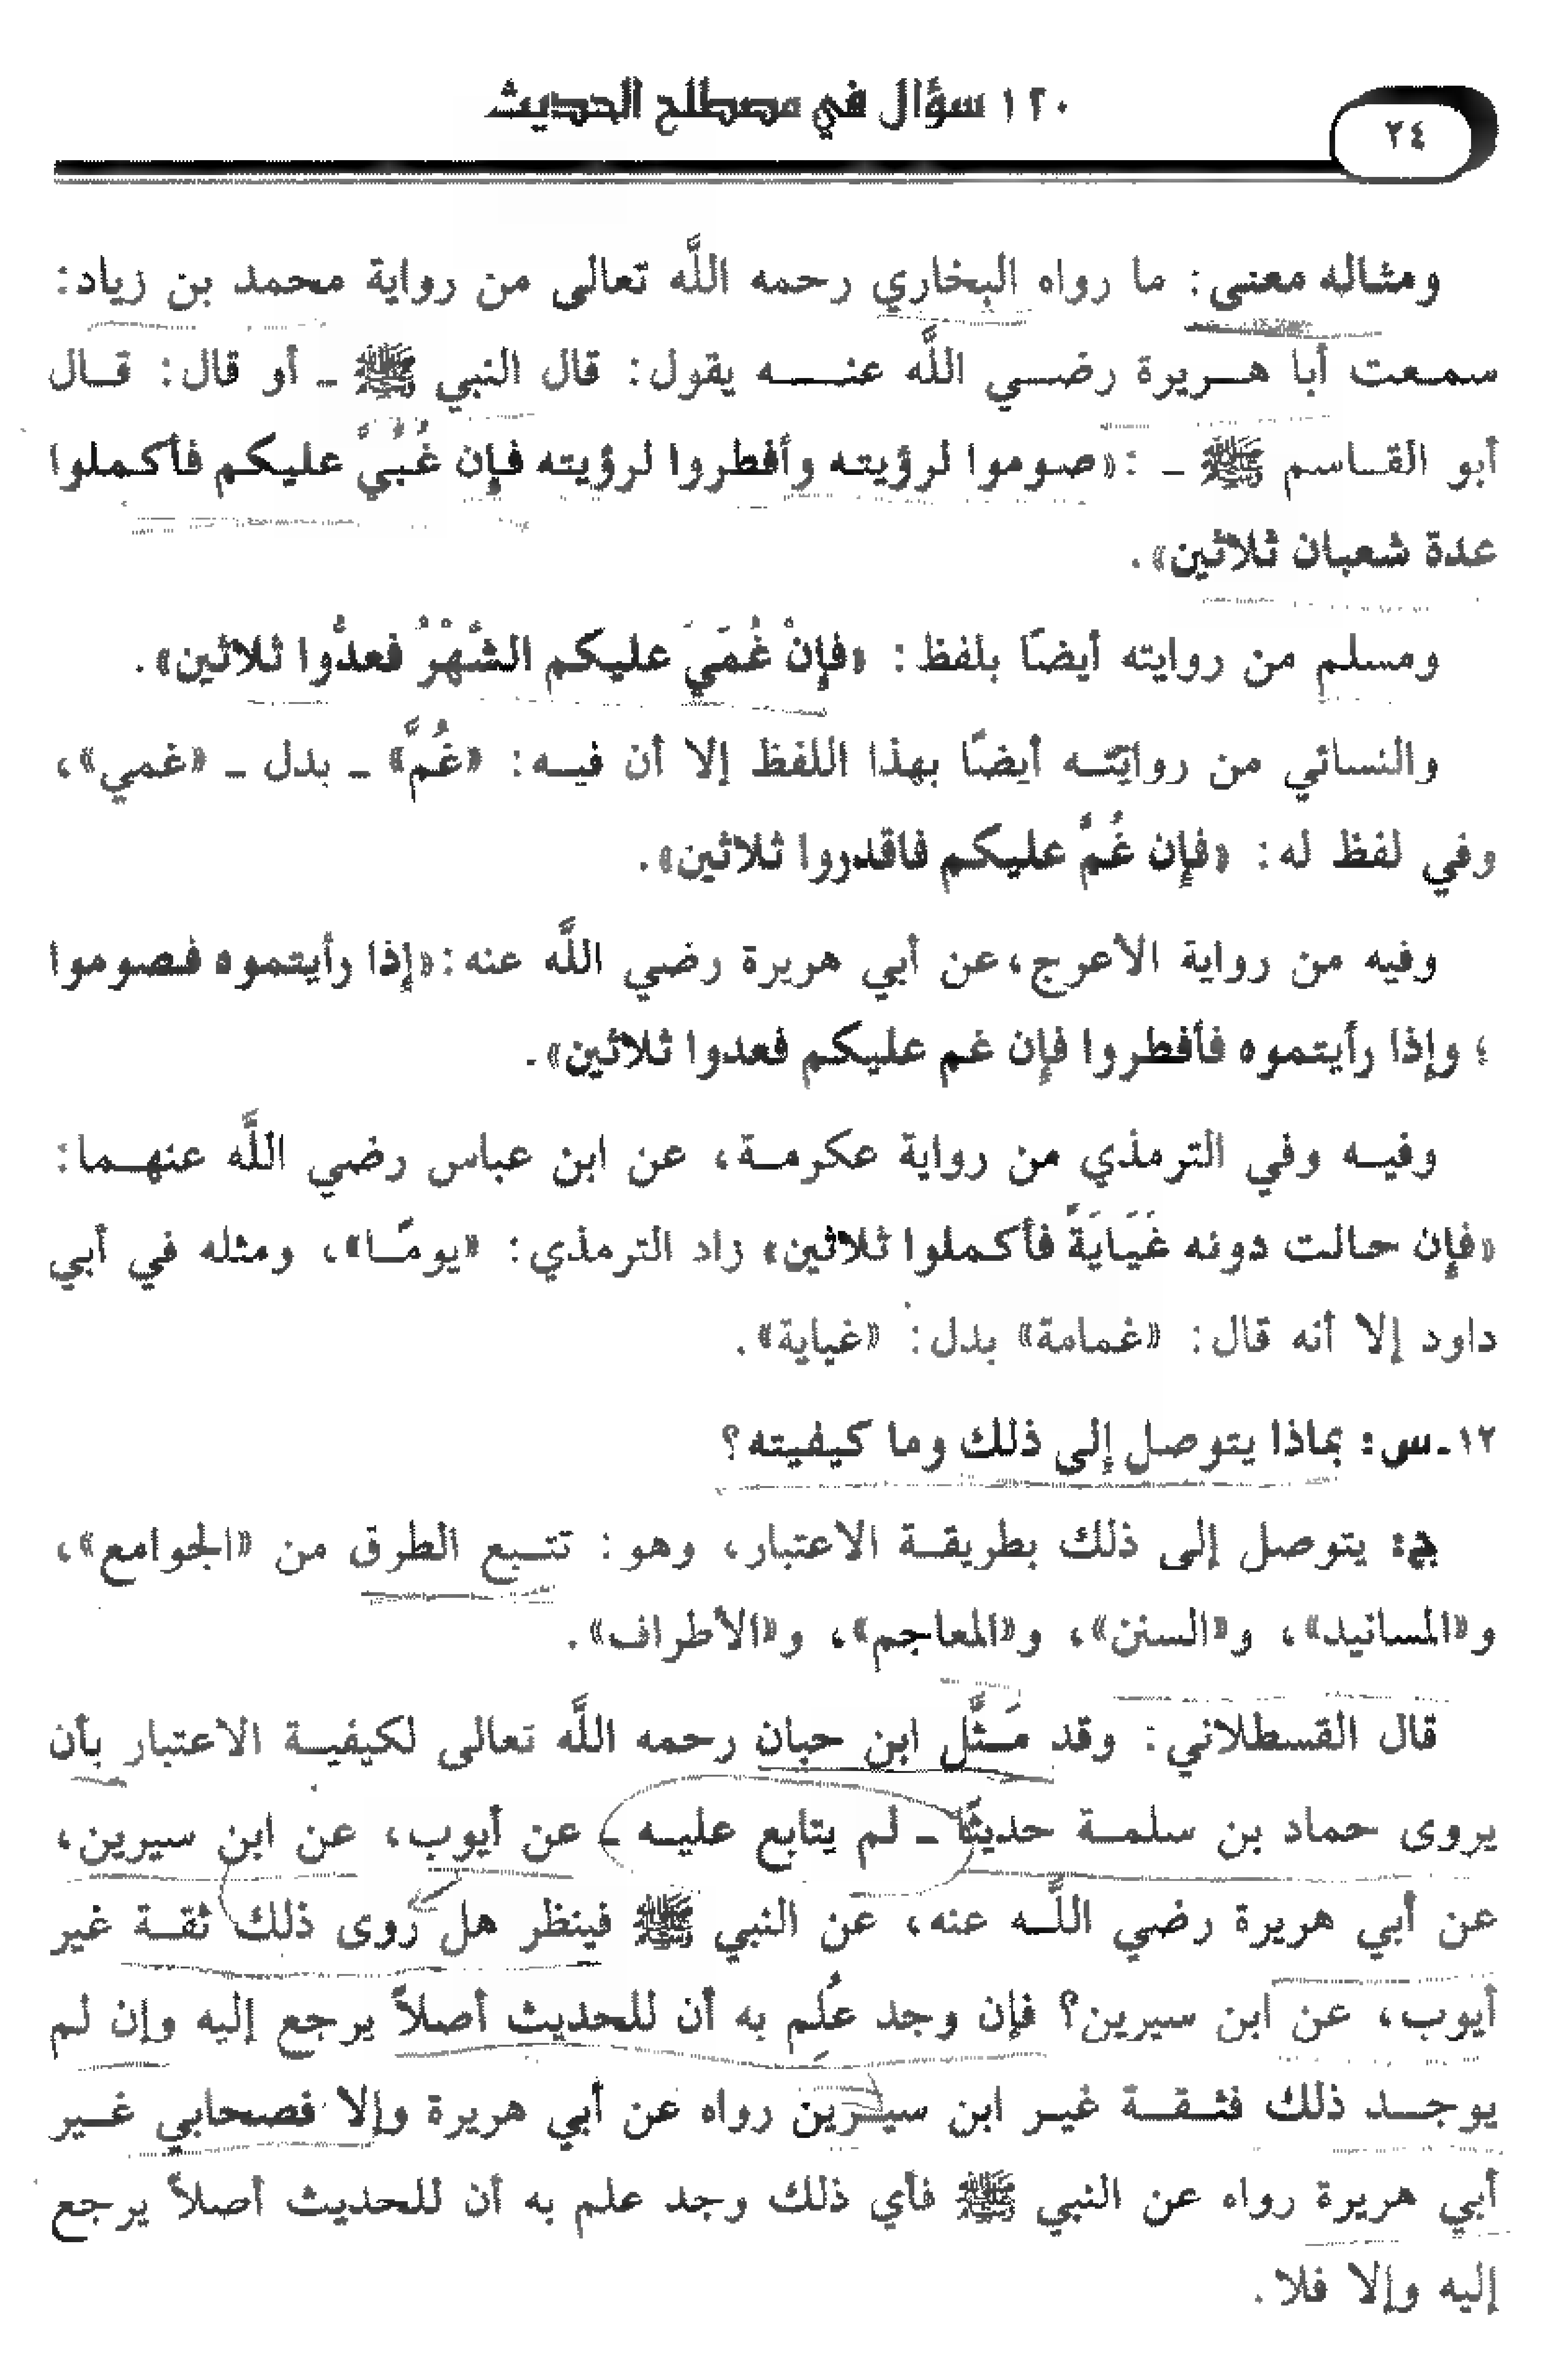 ١٢٠ سؤال في مصطلح الحديث
٢٤
ومثاله معنى: ما رواه البخاري رحمه اللَّه تعالى من رواية محمد بن زياد:
سمعت أبا هريرة رضي اللَّه عنه يقول: قال النبي ﷺ ـ أو قال: قال
أبو القاسم ﷺ ـ : «صوموا لرؤيته وأفطروا لرؤيته فإن غُبِّيَ عليكم فأكملوا
عدة شعبان ثلاثين».
ومسلم من روايته أيضًا بلفظ: «فإِنْ غُمِّيَ عليكم الشَّهْرُ فعدُّوا ثلاثين».
والنسائي من روايته أيضًا بهذا اللفظ إلا أن فيه: «غُمَّ» ـ بدل ـ «غمي»،
وفي لفظ له: «فإِن غُمَّ عليكم فاقدروا ثلاثين».
وفيه من رواية الأعرج، عن أبي هريرة رضي اللَّه عنه: «إِذا رأيتموه فصوموا
؛ وإِذا رأيتموه فأفطروا فإِن غم عليكم فعدوا ثلاثين».
وفيه وفي الترمذي من رواية عكرمة، عن ابن عباس رضي اللَّه عنهما:
«فإِن حالت دونه غَيَايَةً فأكملوا ثلاثين» زاد الترمذي: «يومًا»، ومثله في أبي
داود إلا أنه قال: «غمامة» بدل: «غياية».
١٢ـ س: بماذا يتوصل إلى ذلك وما كيفيته؟
ج: يتوصل إلى ذلك بطريقة الاعتبار، وهو: تتبع الطرق من «الجوامع»،
و«المسانيد»، و«السنن»، و«المعاجم»، و«الأطراف».
قال القسطلاني: وقد مَثَّل ابن حبان رحمه اللَّه تعالى لكيفية الاعتبار بأن
يروى حماد بن سلمة حديثًا ـ لم يتابع عليه ـ عن أيوب، عن ابن سيرين،
عن أبي هريرة رضي اللَّه عنه، عن النبي ﷺ فينظر هل روى ذلك ثقة غير
أيوب، عن ابن سيرين؟ فإن وجد عُلِم به أن للحديث أصلاً يرجع إليه وإن لم
يوجد ذلك فثقة غير ابن سيرين رواه عن أبي هريرة وإلا فصحابي غير
أبي هريرة رواه عن النبي ﷺ فأي ذلك وجد علم به أن للحديث أصلاً يرجع
إليه وإلا فلا.